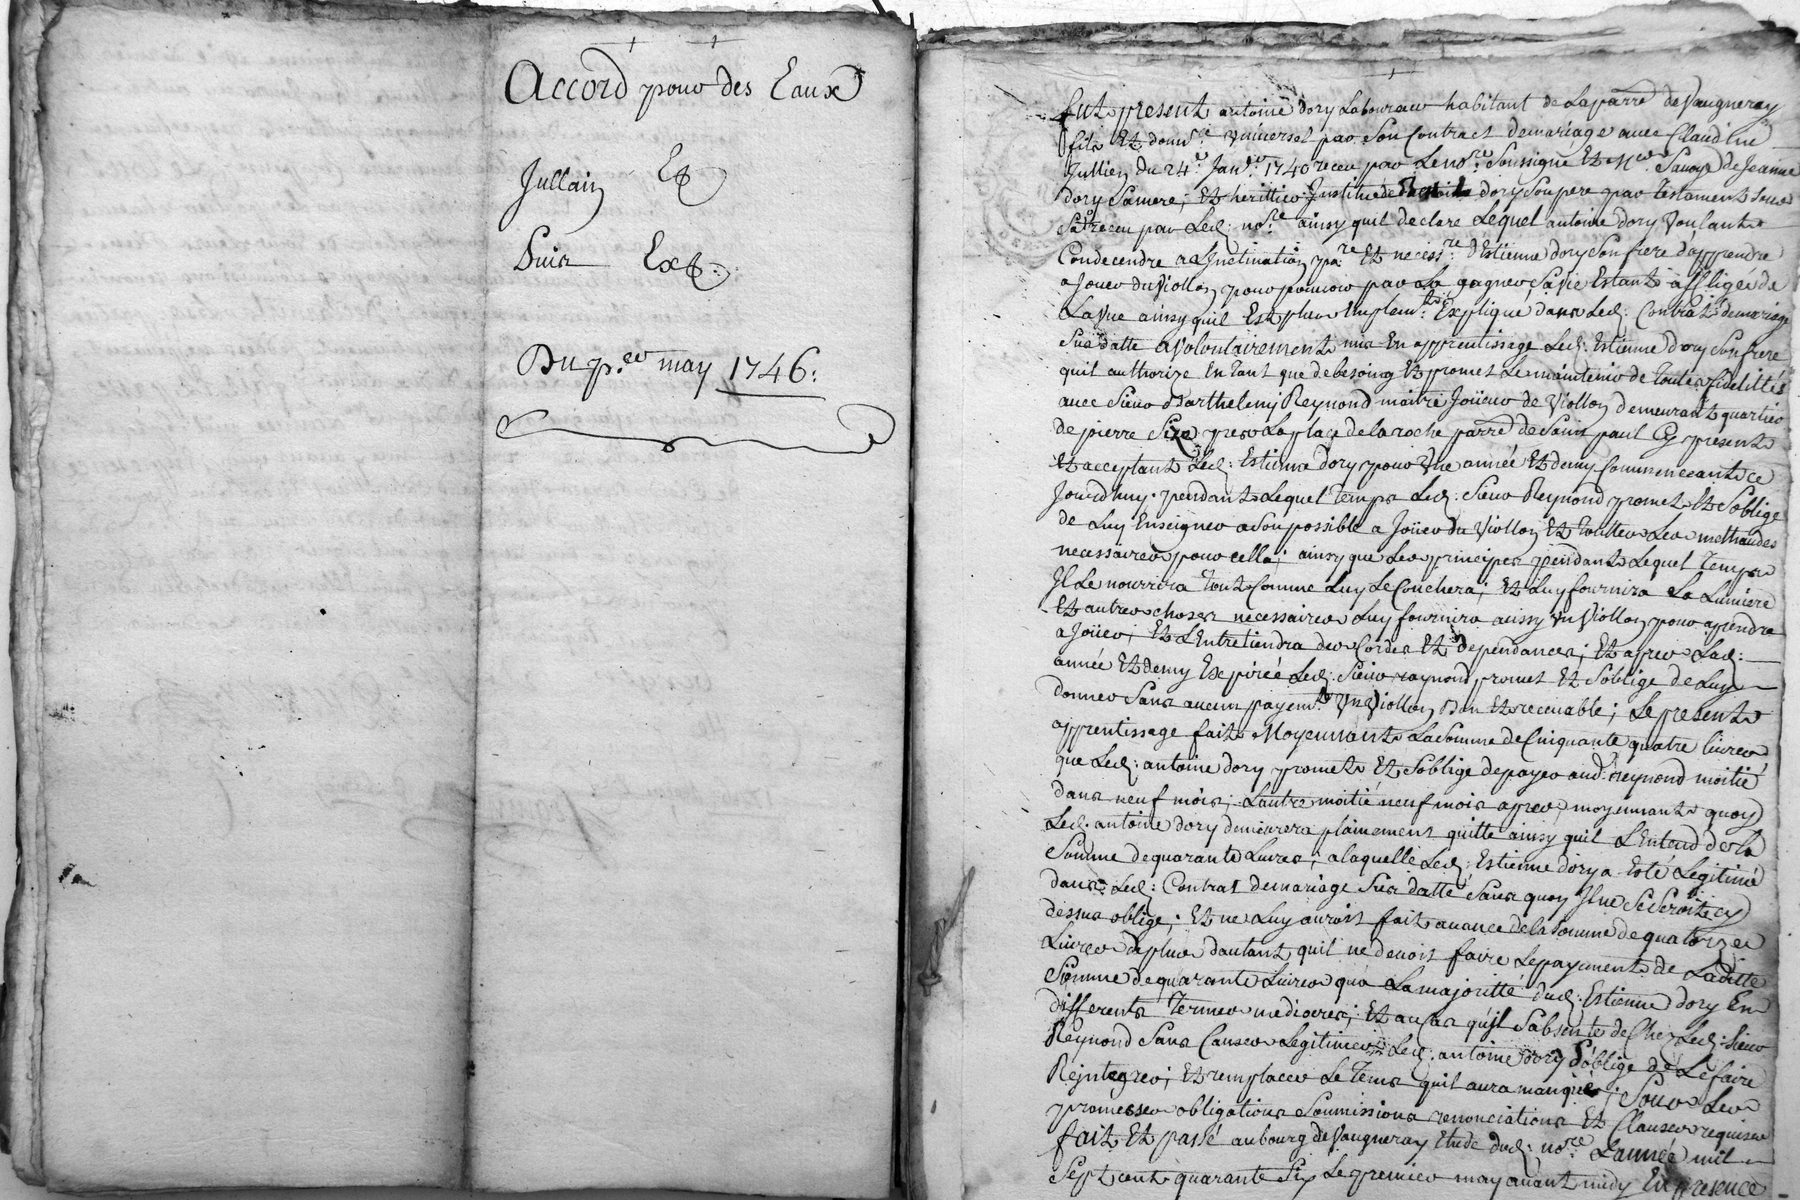 Accord pour des Eaux
Jullain Et
Luis Ext.
Du p.er may 1746:
fut present antoine dory Laboureur habitant de La parre de Vaugneray
fils Et donn.re universel par Son Contract demariage avec Claudine
Jullien du 24.e Janv.r 1740 receu par Le no.re Soussigné Et M.e Savoye de Jeanne
dory Samere; Et herittier Institué de dory Son pere par testament Sous
receu par Led: no.re ainsy quil declare Lequel antoine dory Voulant
Condecendre a L'Inclination Et necess.re d'Estienne dory Son frere d'apprendre
a Jouer du Viollon pour pouvoir par La gagner Sa vie Estant affligé de
La Vue ainsy quil Est plus amplem.t Expliqué dans Led: Contrat demariage
Sus datte a Volontairement mis En apprentissage Led: Estienne dory Son frere
quil authorize En tant que de besoing Et promet Le maintenir de toutes fidelittés
avec Sieur Barthelemy Reynond maitre Joüeur de Viollon demeurant quartier
de pierre Size pres La place de la roche parre de Saint paul Cy present
Et acceptant Led: Estienne dory pour Une année Et demy Commencant ce
Jourdhuy. pendant Lequel temps Led: Sieur Reynond promet Et Soblige
de Luy Enseigner a Son possible a Joüer du Viollon Et touttes Les methaudes
necessaires pour cella; ainsy que Les principes pendant Lequel temps
Il Le nourrira tout Comme Luy Le Couchera; Et Luy fournira La Lumiere
Et autres choses necessaires Luy fournira aussy Un Viollon pour aprendre
a Joüer; Et L'Entretiendra des Cordes Et dependances; Et apres Lad:
année Et demy Expirée Led: Sieur raynond promet Et Soblige de Luy
donner Sans aucun payem.t Un Viollon Bon Et recevable; Le present
apprentissage fait Moyennant La Somme de Cinquante quatre Livres
que Led: antoine dory promet Et Soblige de payer aud: reynond moitié
dans neuf mois; Lautre moitié neuf mois apres, moyennant quoy
Led: antoine dory demeurera plainement quitte ainsy quil L'Entend de la
Somme de quarante Livres; a laquelle Led: Estienne dory a Esté Legitimé
dans Led: Contrat demariage Sus datté Sans quoy Il ne Se Seroit cy
dessus obligé; Et ne Luy auroit fait avance de la Somme de quatorze
Livres de plus dautant quil ne devoit faire Le payement de Laditte
Somme de quarante Livres qua La majoritté dud: Estienne dory En
differents Termes mediocres; Et au Cas qu'il Sabsente de Chez Led: Sieur
Reynond Sans Causes Legitimes Led: antoine dory Soblige de Le faire
Rejntegrer; Et remplacer Le Tems quil aura manqué; Sous Les
promesses obligations Soumissions renonciations Et Clauses requises
fait Et passé au bourg de Vaugneray Etude dud: no.re L'année mil
Sept cent quarante Six Le premier may avant midy En presence